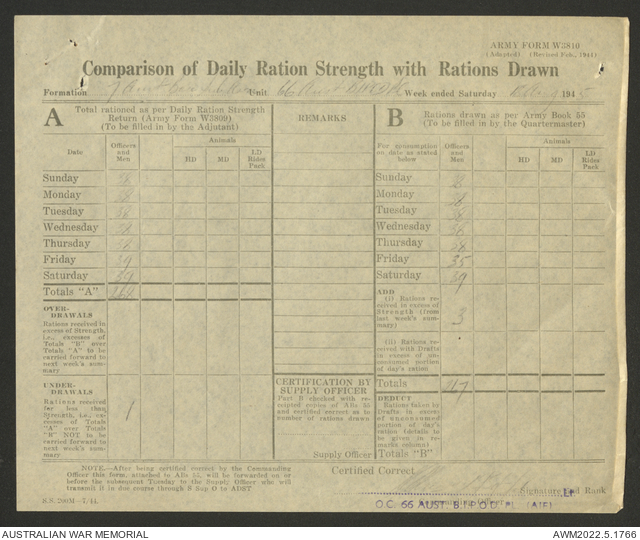 ARMY FORM W3816
(Adapted) (Revised Feb., 1941)
Comparison of Daily Ration Strength with Rations Drawn
Formation Unit 66 Aust Week ended Saturday 1945
A Total rationed as per Daily Ration Strength
Return (Army Form W3809)
(To be filled in by the Adjutant)
Date
Officers
and
Men
Animals
HD MD LD
Rides
Pack
Sunday
Monday
Tuesday
Wednesday
Thursday
Friday 39
Saturday 39
Totals "A"
OVER-
DRAWALS
Rations received in
excess of Strength,
i.e., excesses of
Totals "B" over
Totals "A" to be
carried forward to
next week's sum-
mary
UNDER-
DRAWALS
Rations received
for less than
Strength, i.e., ex-
cesses of Totals
"A" over Totals
"B" NOT to be
carried forward to
next week's sum-
mary
1
REMARKS
CERTIFICATION BY
SUPPLY OFFICER
Part B checked with re-
ceipted copies of ABs 55
and certified correct as to
number of rations drawn
Supply Officer
B Rations drawn as per Army Book 55
(To be filled in by the Quartermaster)
For consumption
on date as stated
below
Officers
and
Men
Animals
HD MD LD
Rides
Pack
Sunday
Monday
Tuesday
Wednesday
Thursday
Friday 35
Saturday 39
ADD
(i) Rations re-
ceived in excess of
Strength (from
last week's sum-
mary)
3
(ii) Rations re-
ceived with Drafts
in excess of un-
consumed portion
of day's ration
Totals
DEDUCT
Rations taken by
Drafts in excess
of unconsumed
portion of day's
ration (details to
be given in re-
marks column)
Totals "B"
NOTE.—After being certified correct by the Commanding
Officer this form, attached to ABs 55, will be forwarded on or
before the subsequent Tuesday to the Supply Officer who will
transmit it in due course through S Sup O to ADST.
S.S. 200M—7/44.
Certified Correct
Signature and Rank
O.C. 66 AUST. (AIF)
AUSTRALIAN WAR MEMORIAL
AWM2022.5.1766